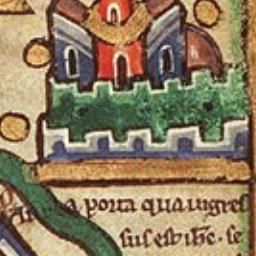 porta qua ingres
sus est ihc · se